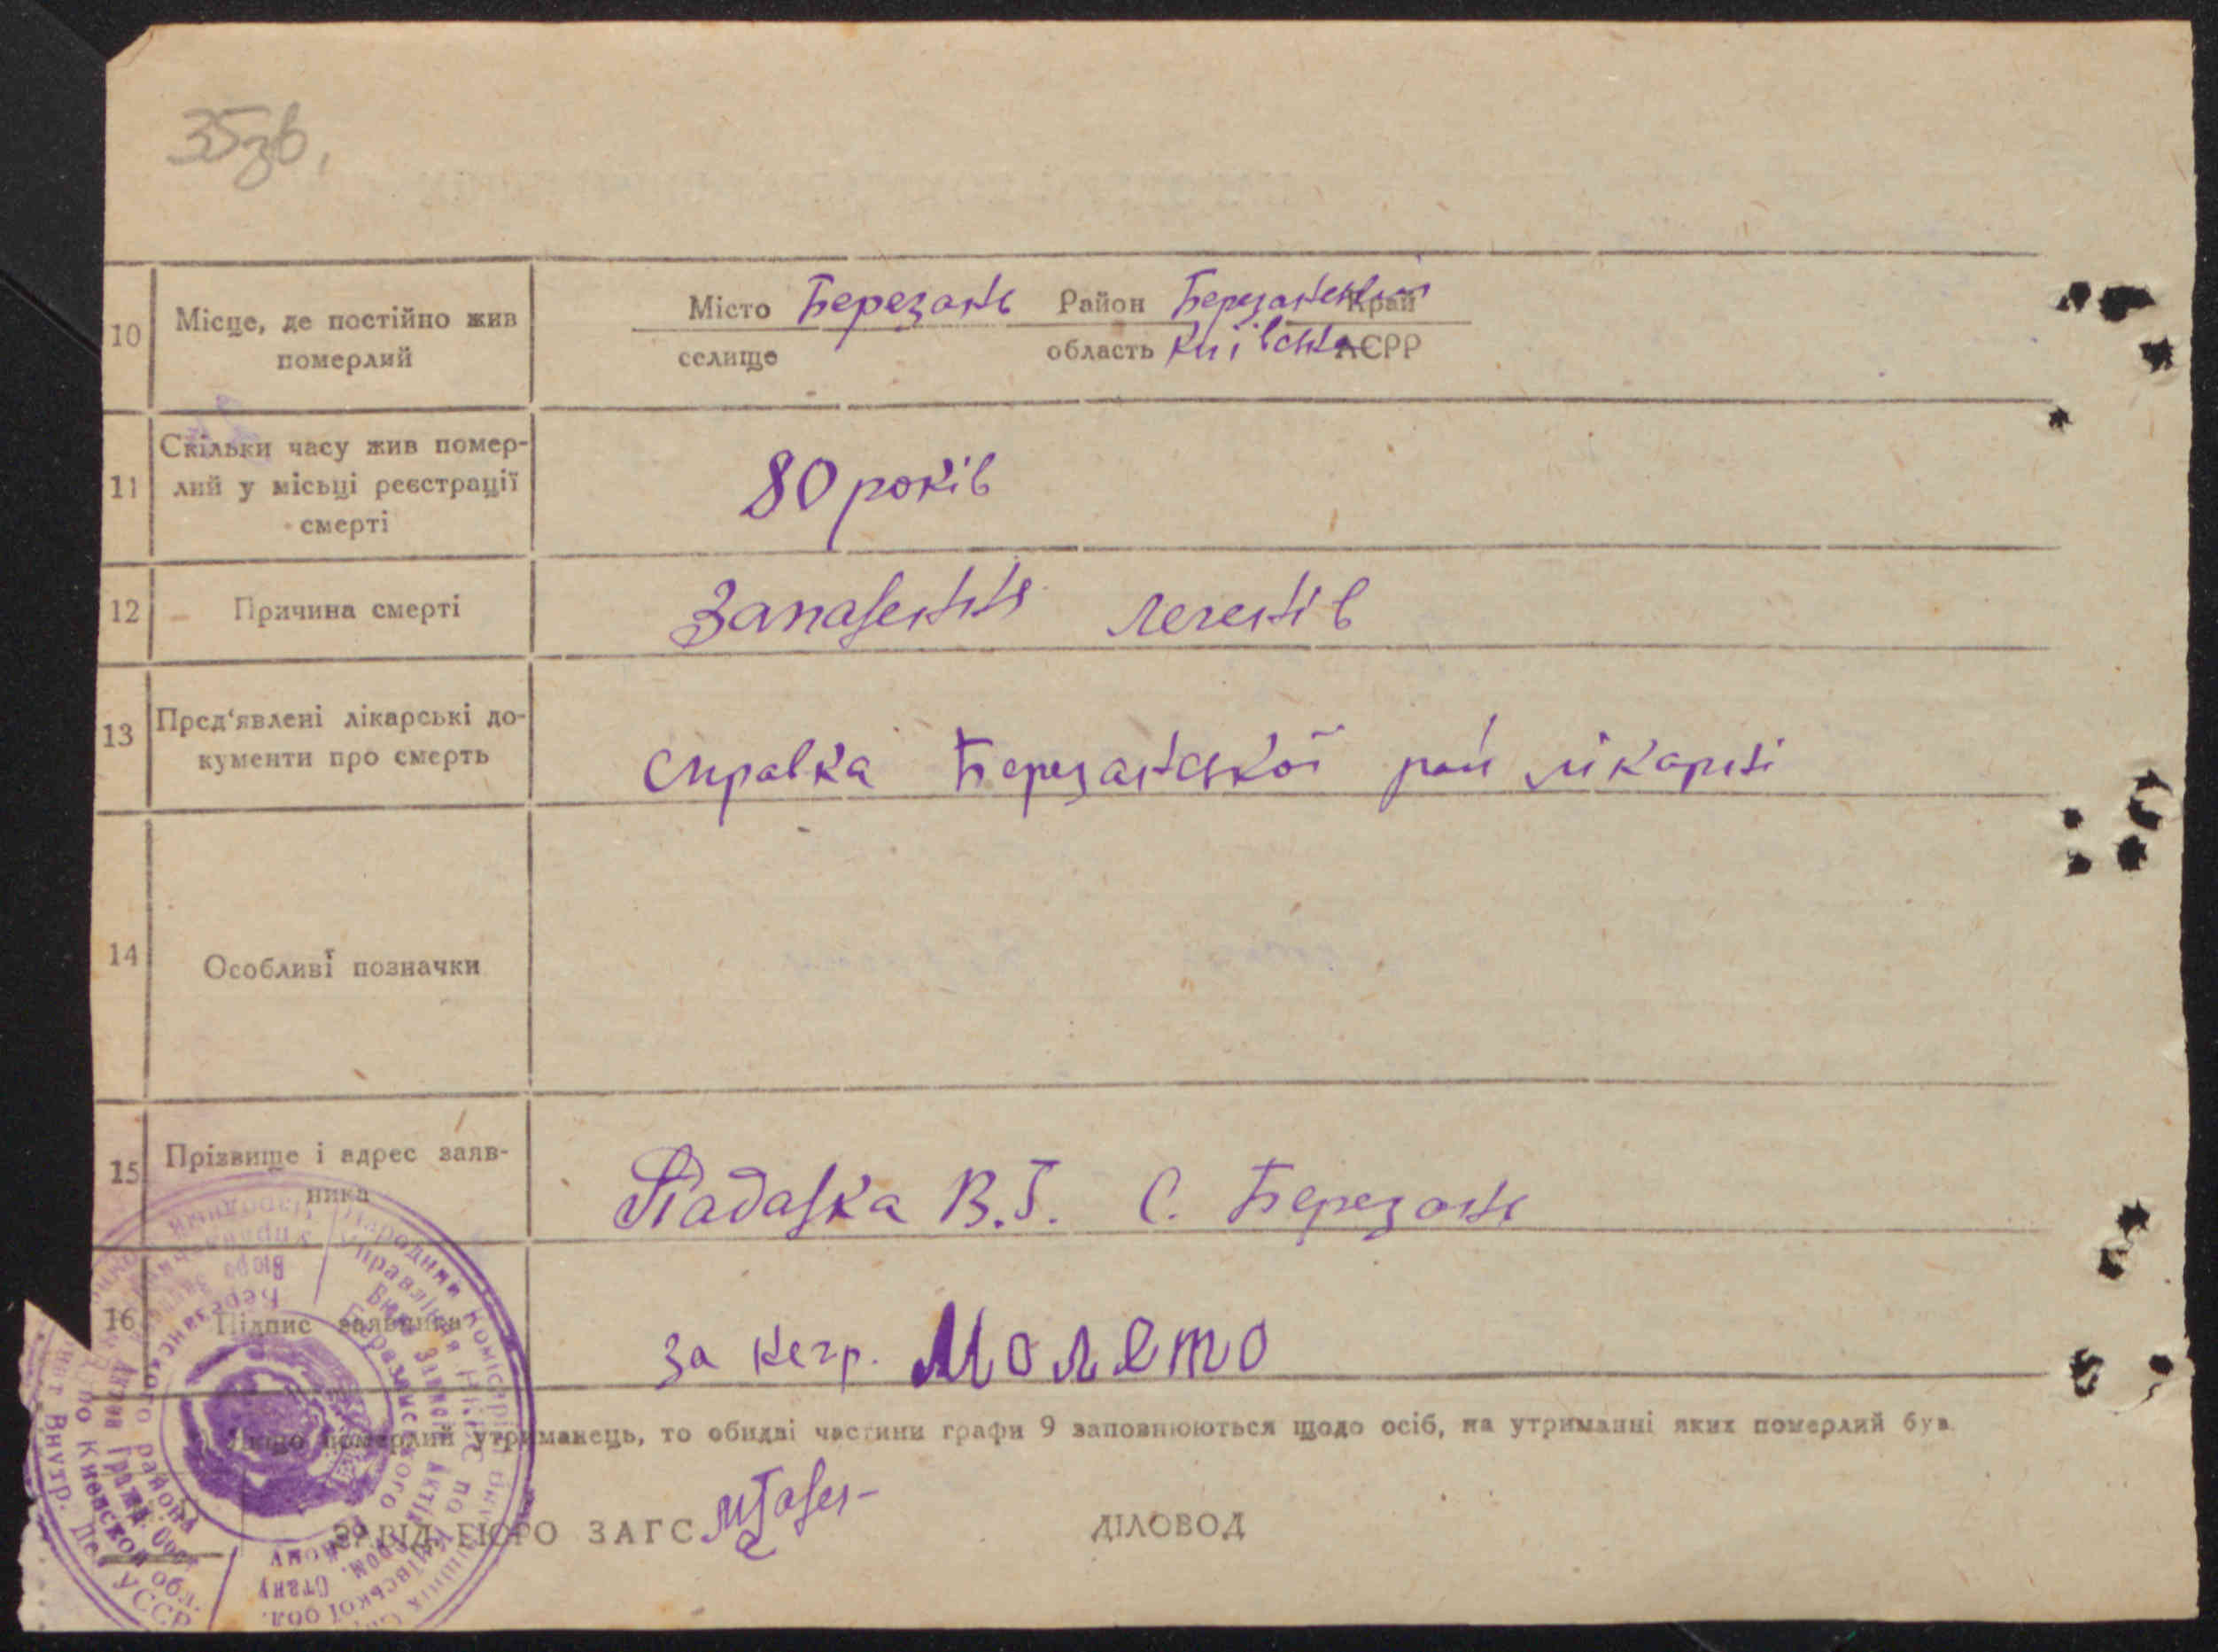 35зв.
10 Місце, де постійно жив
померлий
Місто Березань Район Березанський Край
селище область Київська АСРР
11 Скільки часу жив помер-
лий у місьці реєстрації
смерті
80 років
12 Причина смерті
Запалення легенів
13 Пред'явлені лікарські до-
кументи про смерть
справка Березанської рай лікарні
14 Особливі позначки
15 Прізвище і адрес заяв-
ника
В.Г. С. Березань
16 Підпис заявника
за негр.
Якщо померлий утриманець, то обидві частини графи 9 заповнюються щодо осіб, на утриманні яких померлий був.
ЗАВІД. БЮРО ЗАГС
ДІЛОВОД